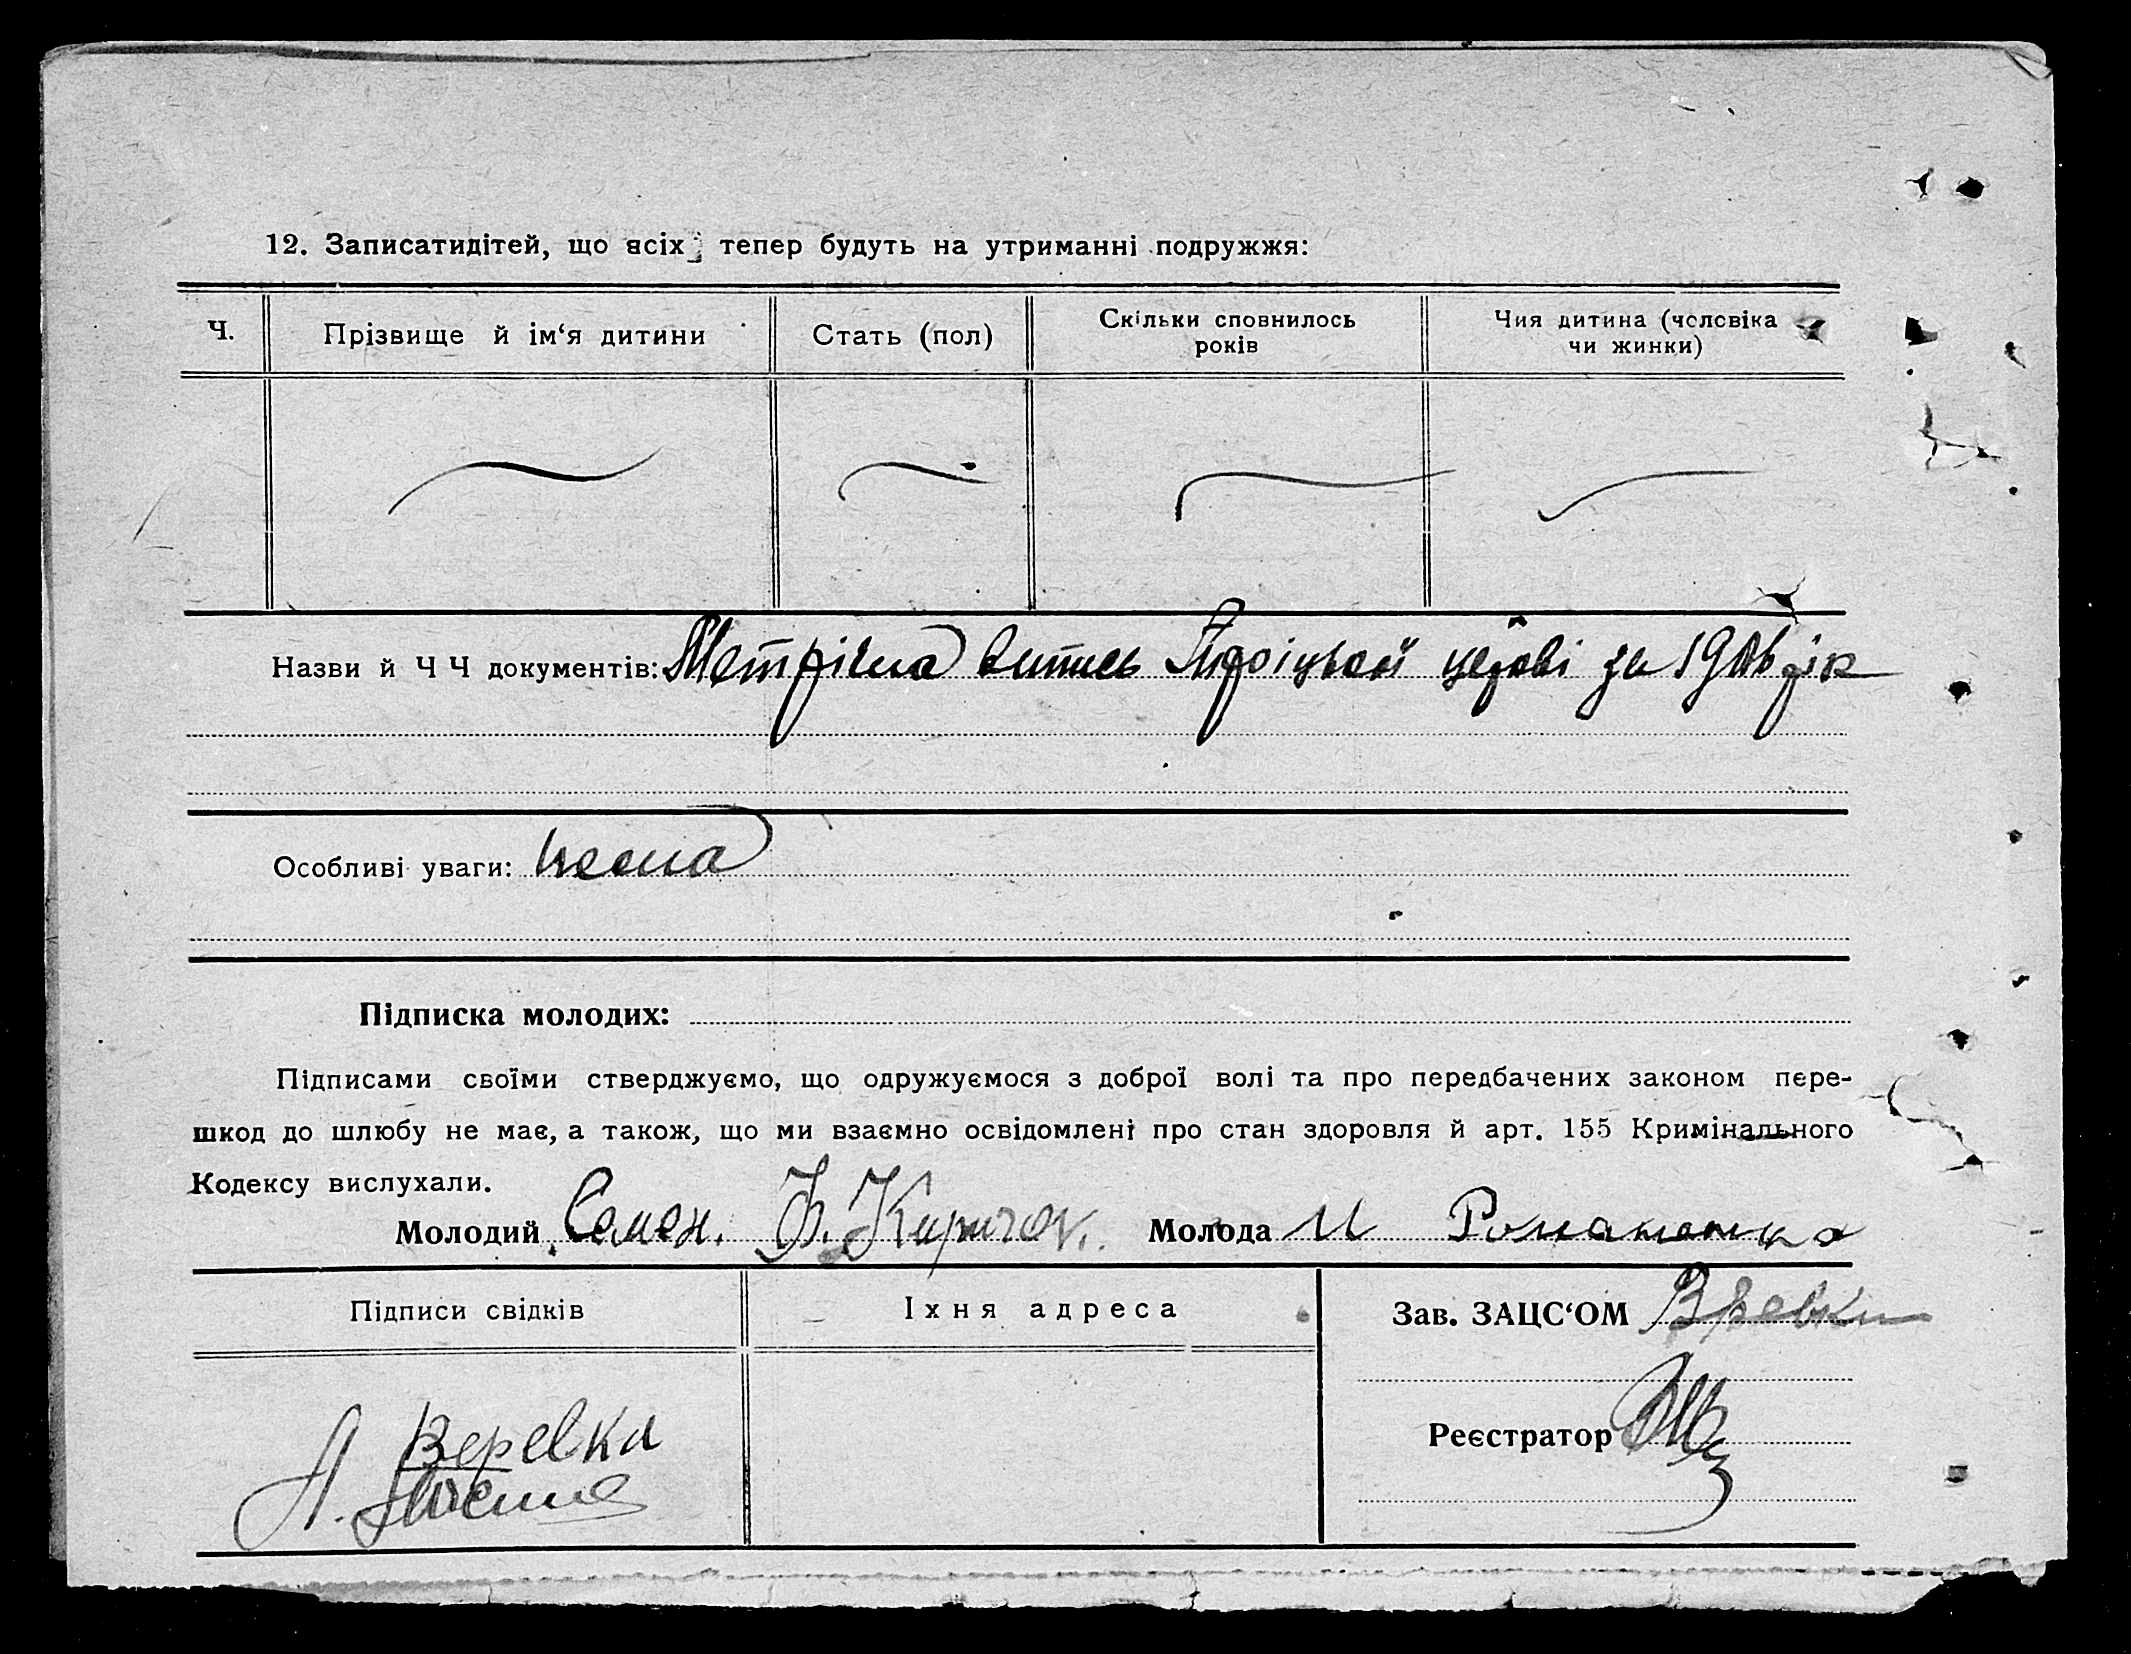 12. Записатидітей, що всіх тепер будуть на утриманні подружжя:
Ч. Прізвище й ім‘я дитини Стать (пол) Скільки сповнилось років Чия дитина (чоловіка чи жинки)
Назви й Ч Ч документів: Метрічна випись Тройцької церкві за 1906 рік
Особливі уваги: нема
Підписка молодих:
Підписами своїми стверджуємо, що одружуємося з доброї волі та про передбачених законом пере-
шкод до шлюбу не має, а також, що ми взаємно освідомлені про стан здоровля й арт. 155 Кримінального
Кодексу вислухали.
Молодий Семен. Ф. Молода И Романенко
Підписи свідків Їхня адреса Зав. ЗАЦС‘ОМ
Веревка Реєстратор
А.